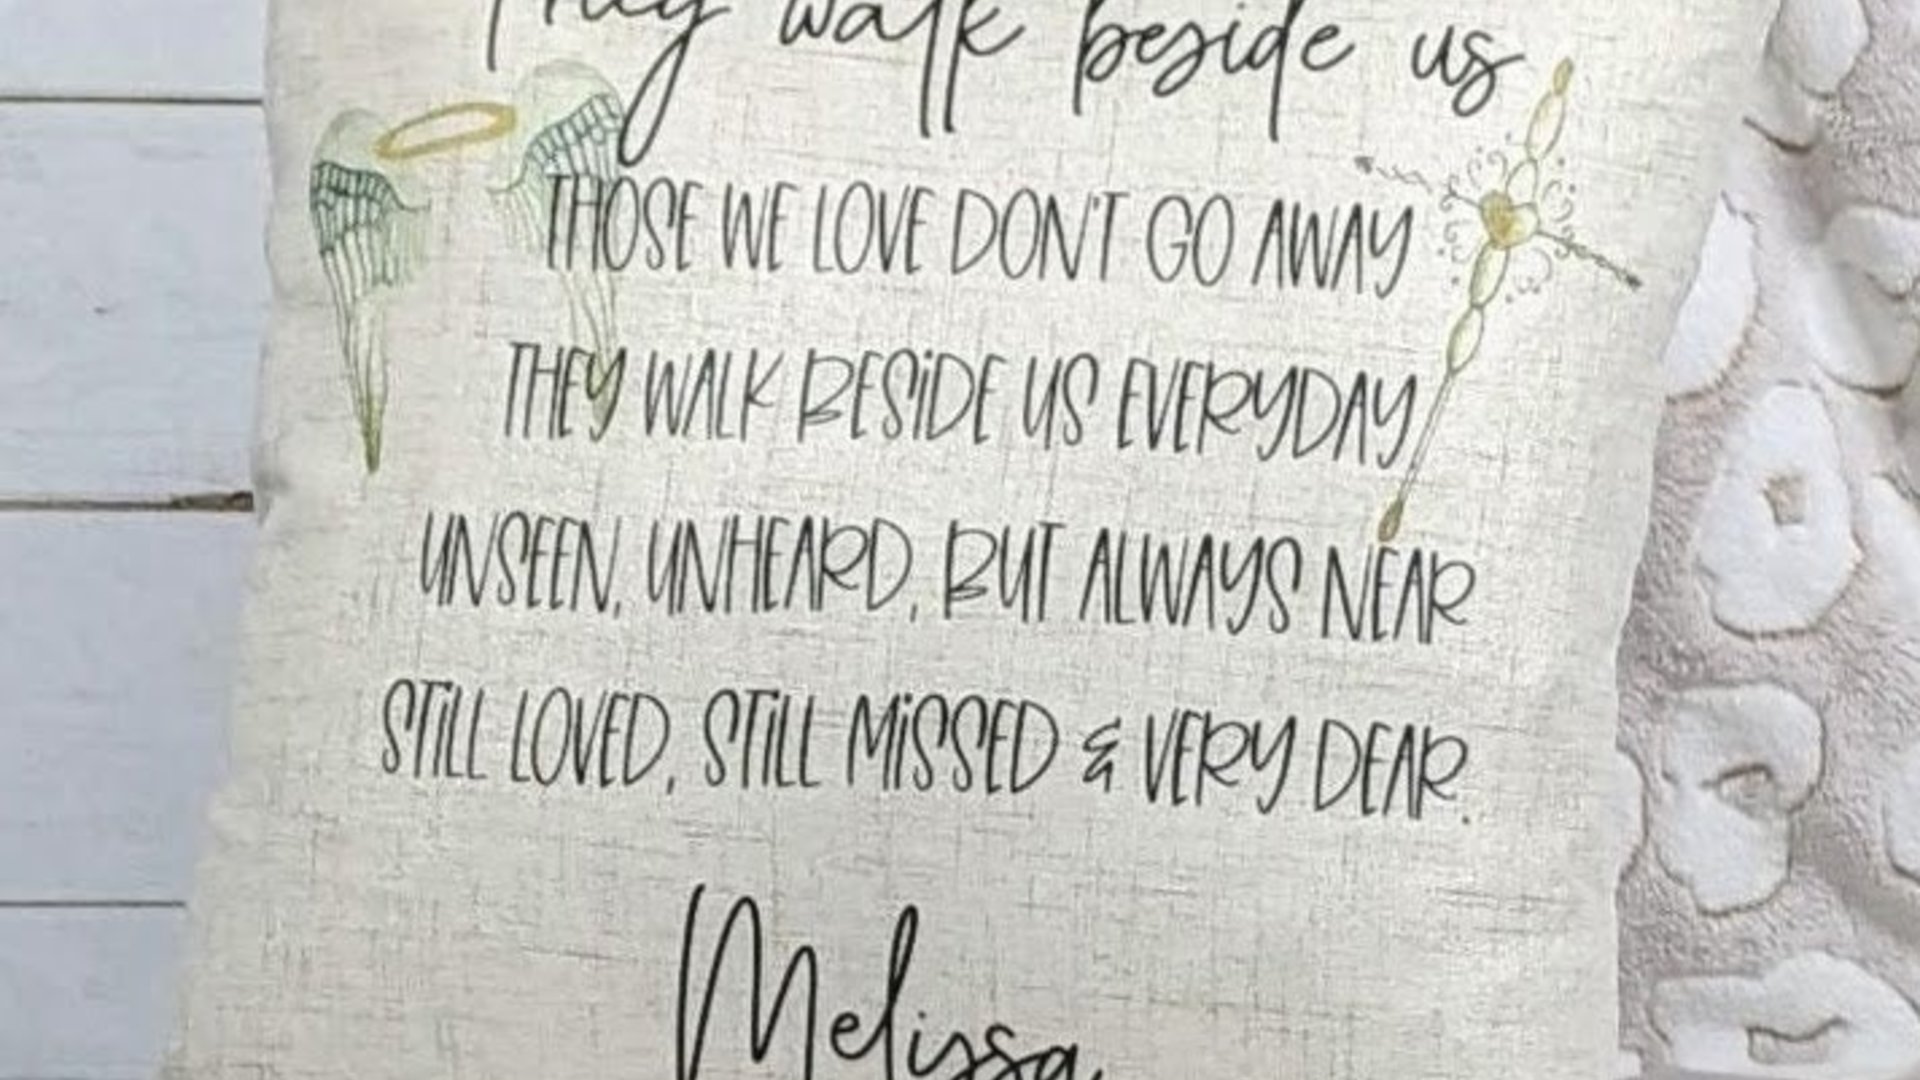 They walk beside us
THOSE WE LOVE DON'T GO AWAY
THEY WALK BESIDE US EVERYDAY
UNSEEN, UNHEARD, BUT ALWAYS NEAR
STILL LOVED, STILL MISSED & VERY DEAR.
Melissa